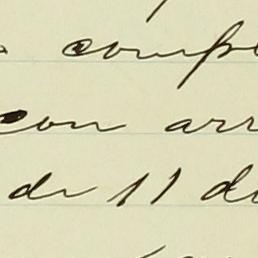 compe
con arr
de 11 de